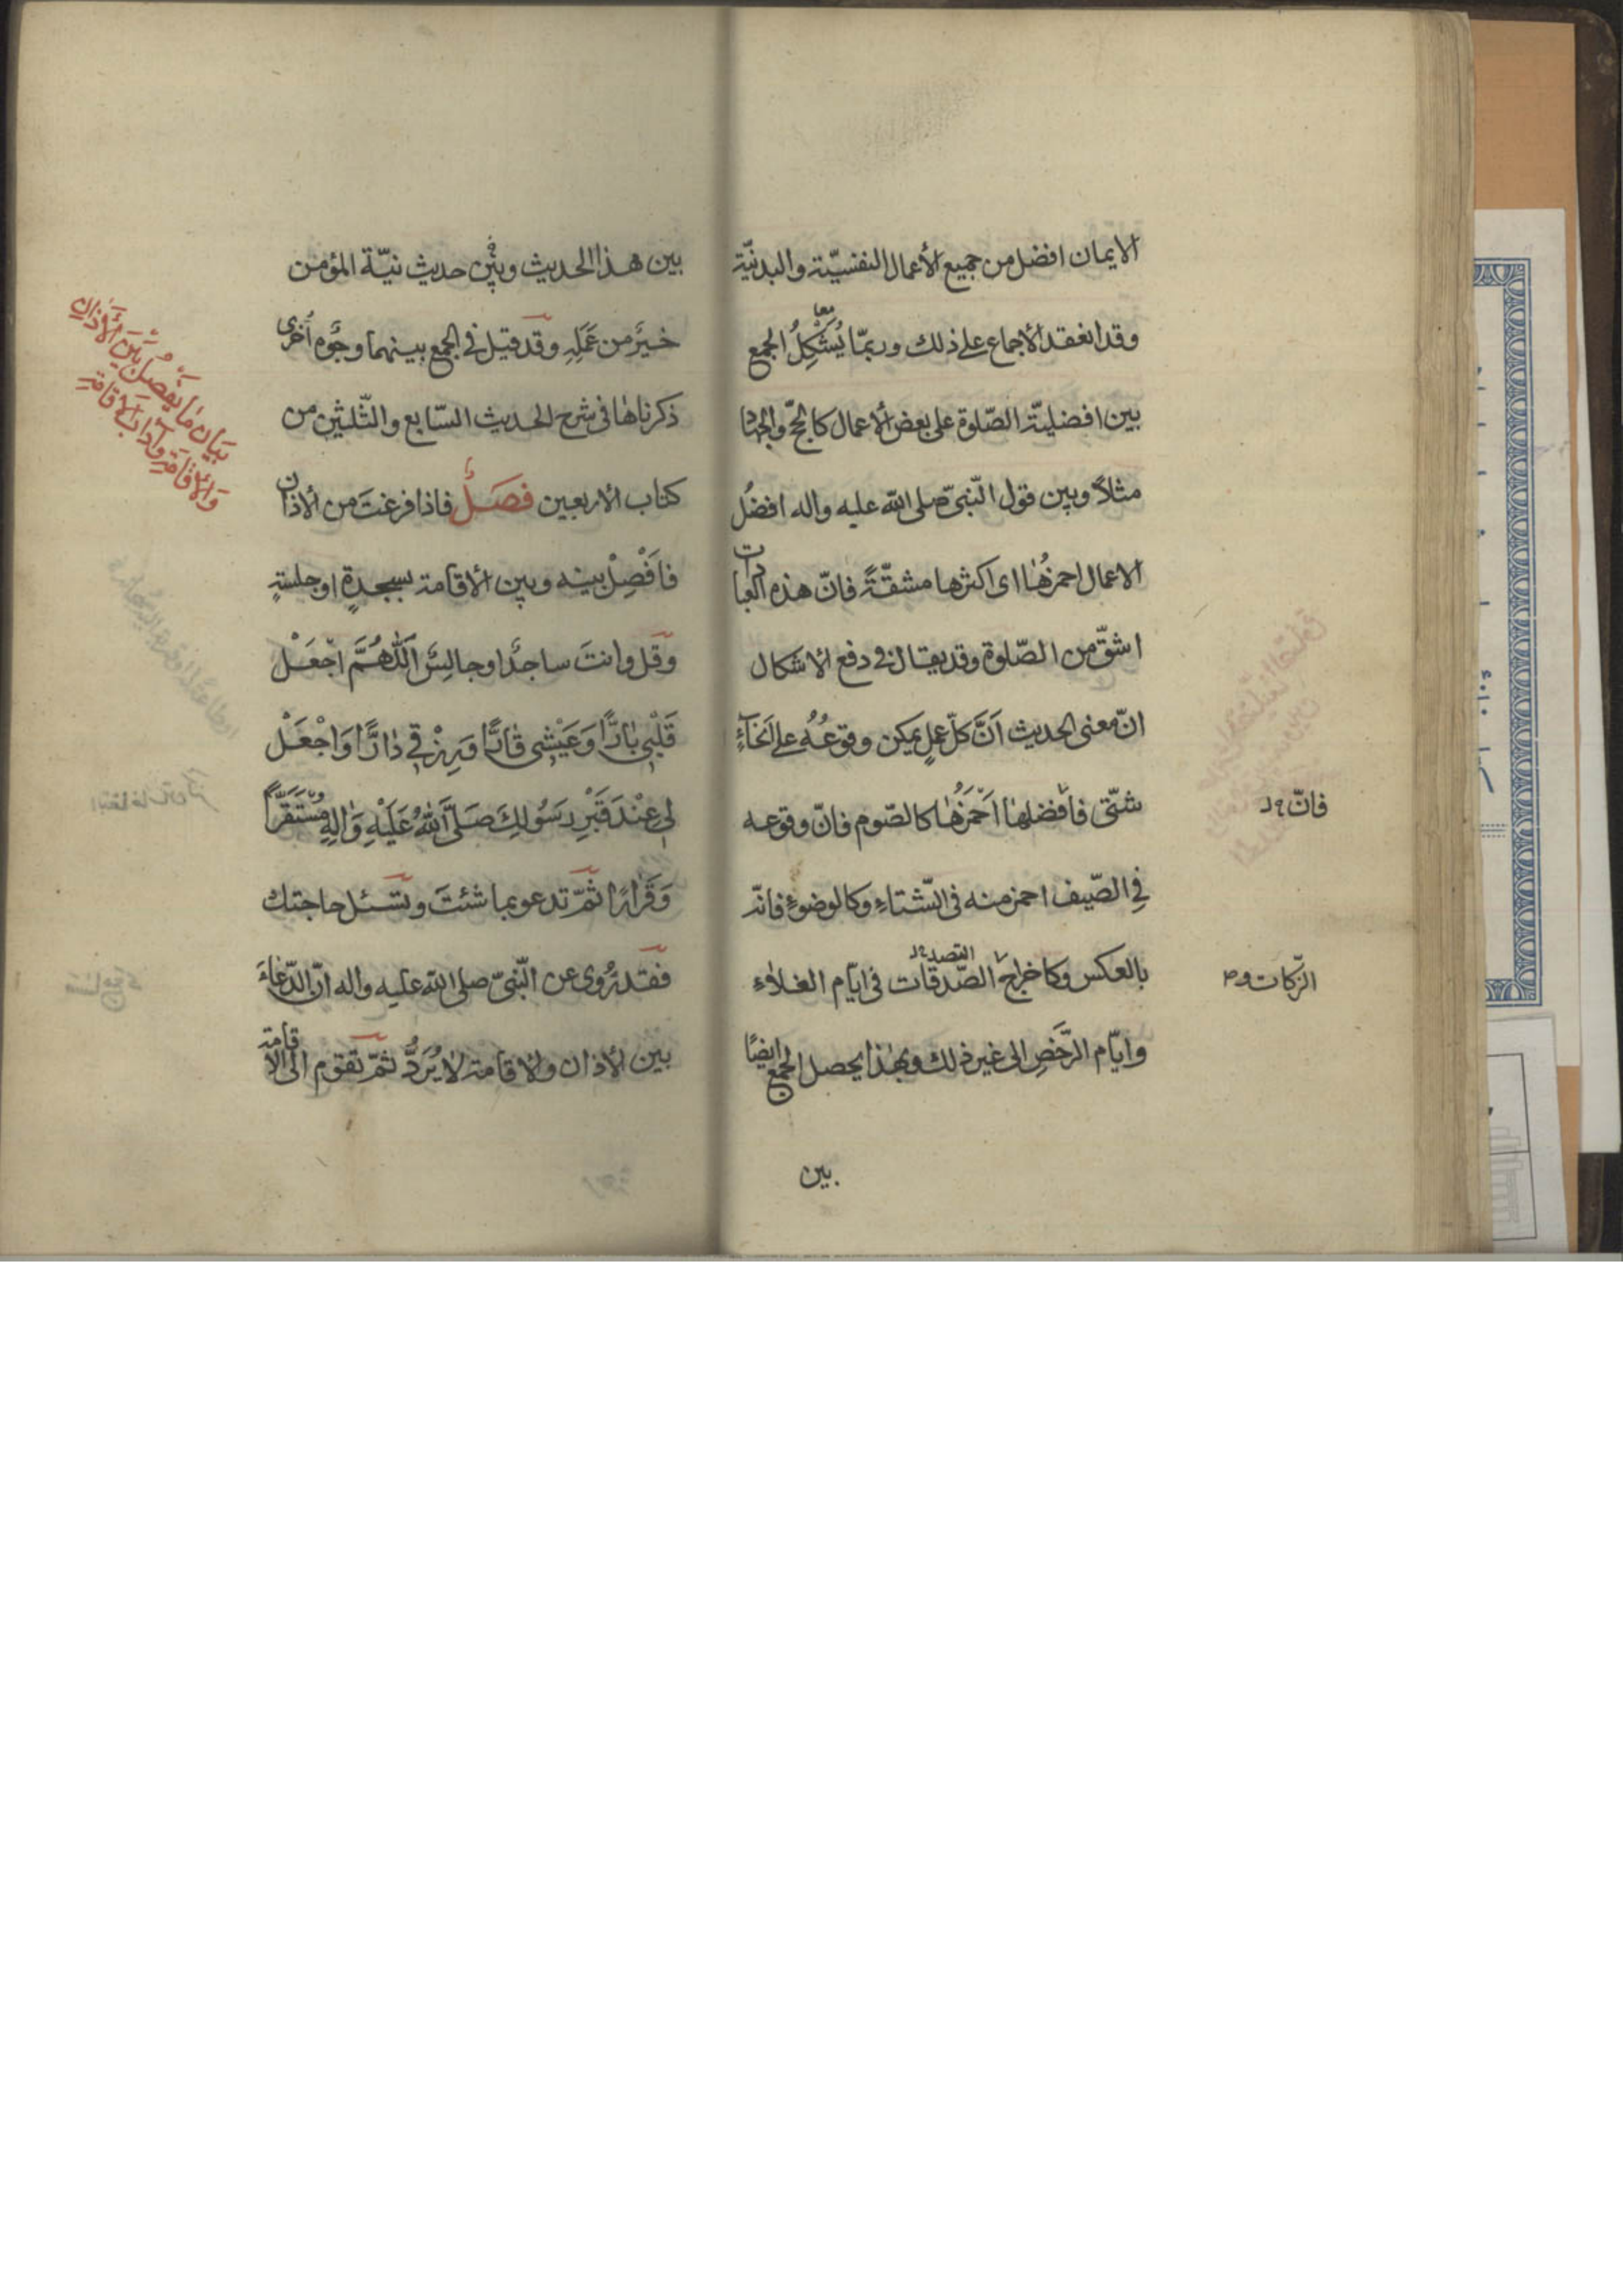 الايمان افضل من جميع الأعمال النفسيّة والبدنيّة
وقد انعقد الأجماع على ذلك وربمّا يُسْتَشْكِلُ الجمع
بين افضليّة الصّلوة على بعض الأعمال كالحجّ والجهاد
مثلاً وبين قول النّبىّ صلى الله عليه واله افضلُ
الاعمال احمزُهٰا اى اكثرها مشقّةً فانّ هذه العبادات
اشقّ من الصّلوة وقد يقال فى دفع الأشكال
انّ معنى الحديث اَنَّ كلّ عملٍ يمكن وقوعُهُ على اَنحٰآءٍ
شتّى فافضلهٰا اَحْمَزُهٰا كالصّوم فانّ وقوعه
فانّ
فِى الصّيف احمز منه فى الشّتاء وكالوضوءِ فانّه
بالعكس وكاخراج الصّدقات فى ايّام الغلاءِ
التصدق
الزّكات و
وايّام الرّخَصِ الى غير ذلك وبهٰذا يحصل الجمع ايضًا
بين
بين هذا الحديث وبين حديث نيّة المؤمن
خيرٌ من عَمَلِهِ وقد قيل فى الجمع بينهما وجوُه اُخرى
ذكرناهٰا فى شرح الحديث السّابع والثّلثين من
كتاب الأربعين فصَلٌ فاذا فرغتَ من الأذان
بَيان مٰا يُفصلُ بَيْنَ الأَذانِ
وَالأِقٰامَةِ وَآدابَ الأِقامَةِ
فَافْصِلْ بينه وبين الأقامة بسجدةٍ او جلسةٍ
وقل وانتَ ساجدٌ او جالِسٌ اَللّٰهُمَّ اجْعَلْ
قَلْبى بٰارًّا وَعَيْشى قٰارًّا وَرِزْقى دٰارًّا وَاجْعَلْ
لى عِنْدَ قَبْرِ رَسُولِكَ صَلَّى اللهُ عَلَيْهِ وَالِهِ مُسْتَقَرًّا
وَقَرٰارًا ثمّ تدعو بما شئتَ وتسئل حاجتك
فقد رُوى عن النّبىّ صلى الله عليه واله انّ الدّعٰاءَ
بين الأذان والأقامة لا يُرَدُّ ثمّ تقوم الى الاقامة